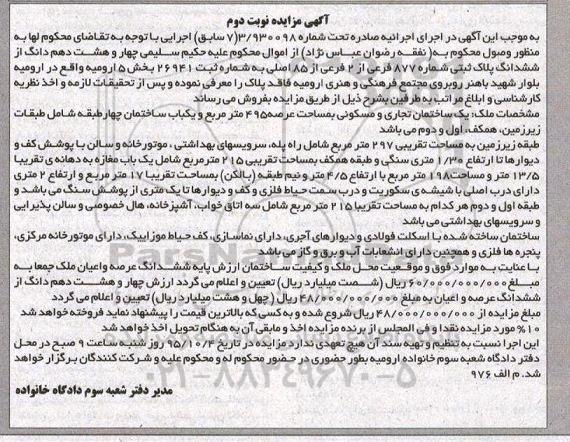 آگهی مزایده نوبت دوم
به موجب این آگهی در اجرای اجرائیه صادره تحت شماره ۳/۹۳۰۰۹۸(۷ سابق) اجرایی با توجه به تقاضای محکوم لها به
منظور وصول محکوم به( نفقه رضوان عباس نژاد) از اموال محکوم علیه حکیم سلیمی چهار و هشت دهم دانگ از
ششدانگ پلاک ثبتی شماره ۸۷۷ فرعی از ۲ فرعی از ۸۵ اصلی به شماره ثبت ۲۶۹۴۱ بخش ۵ ارومیه واقع در ارومیه
بلوار شهید باهنر روبروی مجتمع فرهنگی و هنری ارومیه فاقد پلاک را معرفی نموده و پس از تحقیقات لازمه و اخذ نظریه
کارشناسی و ابلاغ مراتب به طرفین بشرح ذیل از طریق مزایده بفروش می رساند
مشخصات ملک: یک ساختمان تجاری و مسکونی بمساحت عرصه ۴۹۵ متر مربع و یکباب ساختمان چهارطبقه شامل طبقات
زیرزمین، همکف، اول و دوم می باشد
طبقه زیرزمین به مساحت تقریبی ۲۹۷ متر مربع شامل راه پله، سرویسهای بهداشتی ، موتورخانه و سالن با پوشش کف و
دیوارها تا ارتفاع ۱/۳۰ متری سنگی و طبقه همکف بمساحت تقریبی ۲۱۵ مترمربع شامل یک باب مغازه به دهانه ی تقریبا
۱۳/۵ متر و مساحت ۱۹۸ متر مربع با ارتفاع ۴/۵ متر و نیم طبقه (بالکن) بمساحت تقریبا ۱۷ متر مربع و ارتفاع ۲ متری
دارای درب اصلی با شیشه ی سکوریت و درب سمت حیاط فلزی و کف و دیوارها تا یک متری از پوشش سنگ می باشد و
طبقه اول و دوم هر کدام به مساحت تقریبا ۲۱۵ متر مربع شامل سه اتاق خواب، آشپزخانه، هال خصوصی و سالن پذیرایی
و سرویسهای بهداشتی می باشد
ساختمان ساخته شده با اسکلت فولادی و دیوارهای آجری، دارای نماسازی، کف حیاط موزاییک، دارای موتورخانه مرکزی،
پنجره ها فلزی و همچنین دارای انشعابات آب و برق و گاز می باشد
با عنایت به موارد فوق و موقعیت محل ملک و کیفیت ساختمان ارزش پایه ششدانگ عرصه واعیان ملک جمعا به
مبلغ ۶۰/۰۰۰/۰۰۰/۰۰۰ ریال (شصت میلیارد ریال) تعیین و اعلام می گردد ارزش چهار و هشت دهم دانگ از
ششدانگ عرصه و اعیان به مبلغ ۴۸/۰۰۰/۰۰۰/۰۰۰ ریال (چهل و هشت میلیارد ریال) تعیین و اعلام می گردد
مبلغ مزایده از ۴۸/۰۰۰/۰۰۰/۰۰۰ ریال شروع شده و به کسی که بالاترین قیمت را پیشنهاد نماید فروخته خواهد شد
۱۰% مورد مزایده نقدا و فی المجلس از برنده مزایده اخذ و مابقی آن به هنگام تحویل اخذ خواهد شد
این اجرا نسبت به تنظیم و تهیه سند آن هیچ تعهدی ندارد مزایده در تاریخ ۹۵/۱۰/۴ روز شنبه ساعت ۹ صبح در محل
دفتر دادگاه شعبه سوم خانواده ارومیه بطور حضوری در حضور محکوم له و محکوم علیه و شرکت کنندگان برگزار خواهد
شد. م الف ۹۷۶
مدیر دفتر شعبه سوم دادگاه خانواده